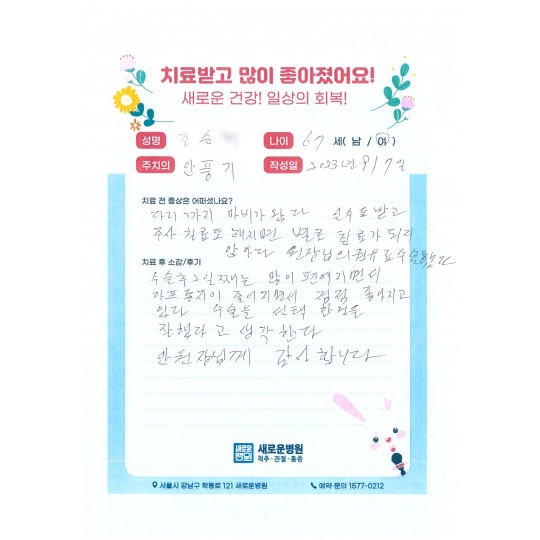 치료받고 많이 좋아졌어요!
새로운 건강! 일상의 회복!
성명 조 승 나이 67 세( 남 / 여 )
주치의 안풍기 작성일 2023년 9/7일
치료 전 증상은 어떠셨나요?
다리까지 마비가 왔다 받고
주사 치료도 해지면 별로 치료가 되지
않았다 원장님의 권유로 수술을
치료 후 소감/후기
수술후 2일째는 많이 편해지면서
아프 줄어지면서 점점 좋아지고
있다 수술을 선택 한것을
잘했다고 생각한다
안원장님께 감사합니다
새로운병원
새로운병원
척추·관절·통증
서울시 강남구 학동로 121 새로운병원 예약·문의 1577-0212